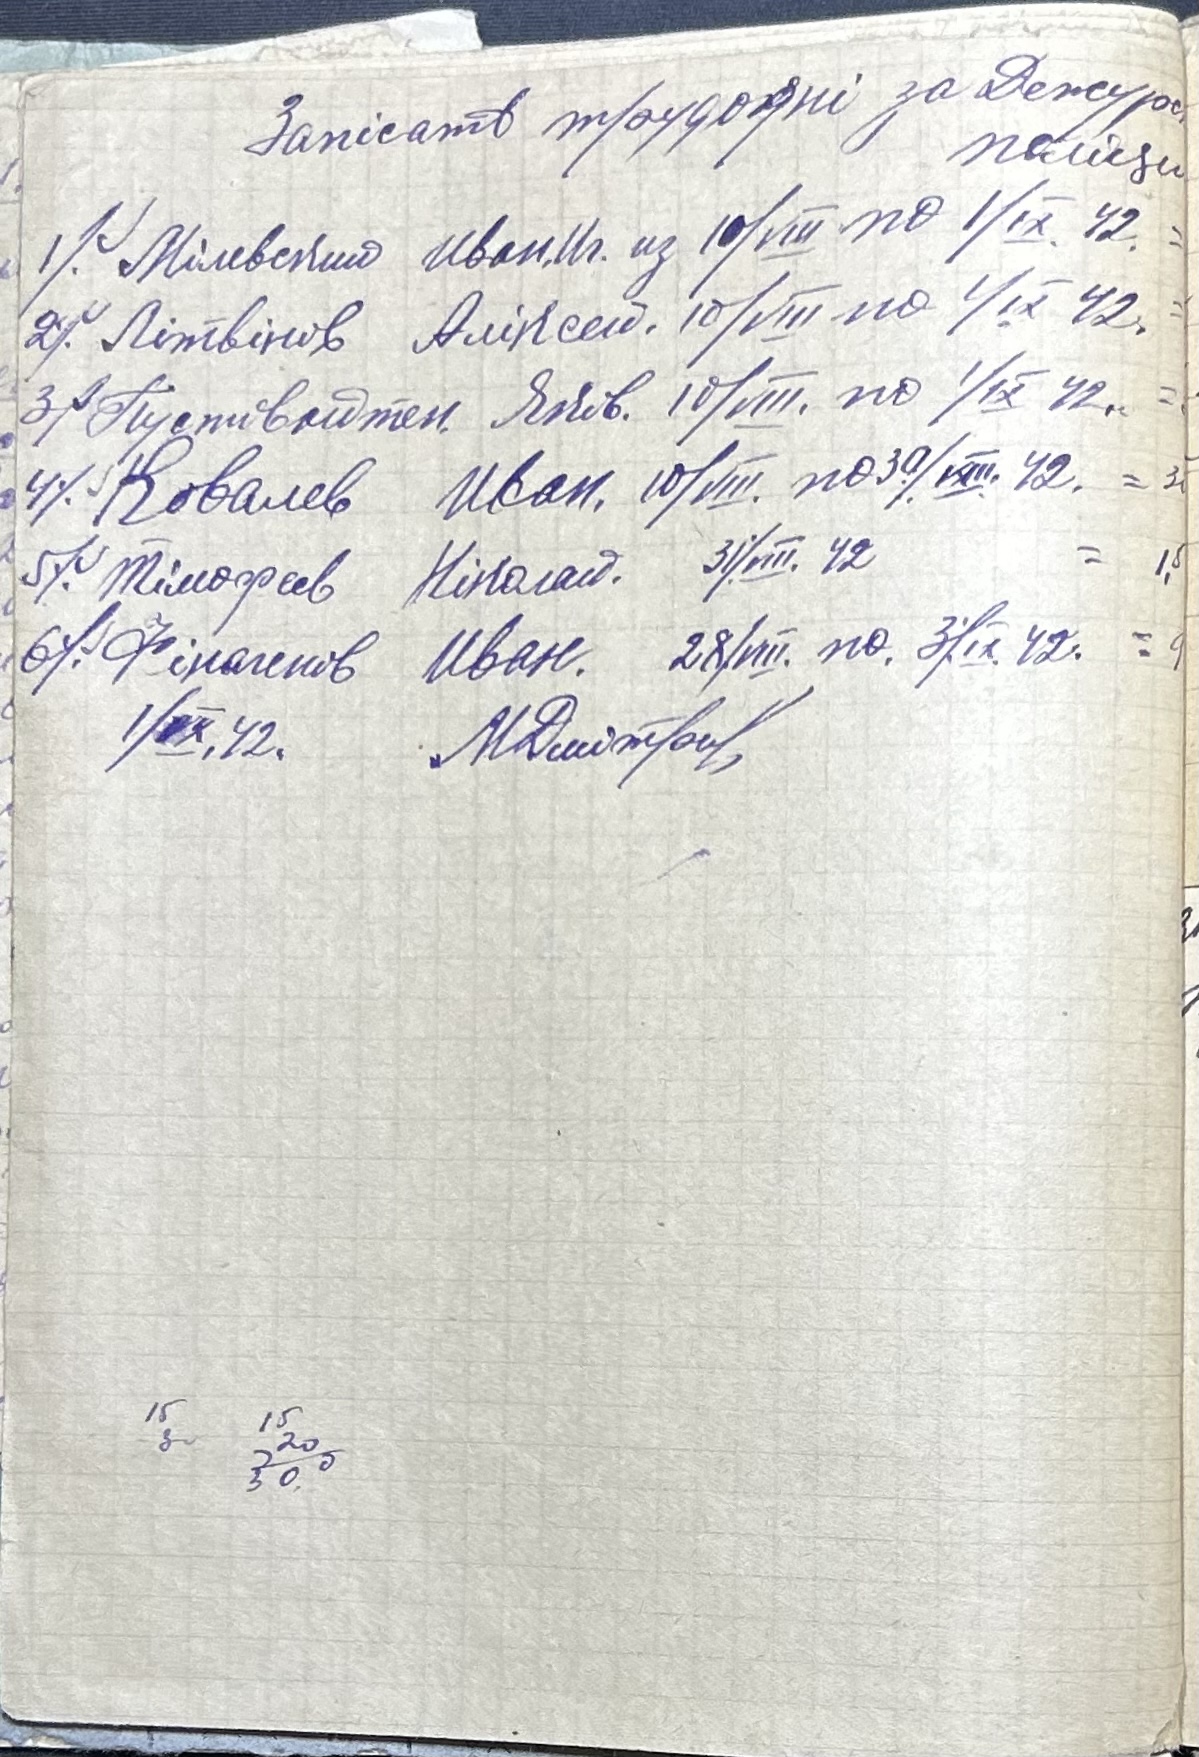 Запісать трудодні за Дежурс
поліци
1/. Мілевский Иван. Иг. из 10/VIII по 1/IX. 42. =
2/. Літвінов Аліксей. 10/VIII по 1/IX 42. =
3/. Пустовойтен. Яков. 10/VIII. по 1/IX 42. =
4/. Ковалев Иван. 10/VIII. по 30/VIII. 42. = 3
5/. Тімофеев Ніколай. 31/VIII. 42 = 1,5
6/. Иван. 28/VIII. по. 3/IX. 42. = 9
1/IX. 42. МДмітр
15 15
3 20
300